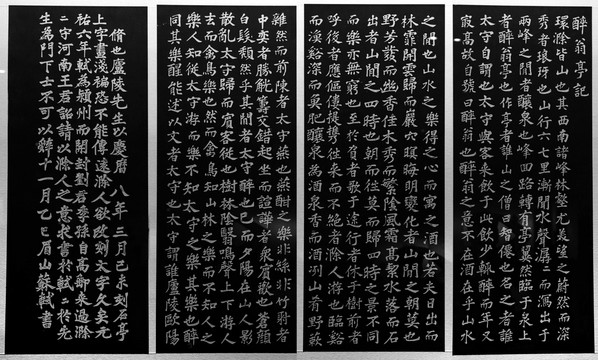 醉翁亭記
環滁皆山也其西南諸峰林壑尤美望之蔚然而深
秀者琅玡也山行六七里漸聞水聲潺二而瀉出于
兩峰之間者釀泉也峰回路轉有亭翼然臨于泉上
者醉翁亭也作亭者誰山之僧曰智僊也名之者誰
太守自謂也太守與客來飲于此飲少輒醉而年又
最高故自號曰醉翁也醉翁之意不在酒在乎山水
之間也山水之樂得之心而寓之酒也若夫日出而
林霏開雲歸而巖穴暝晦明變化者山間之朝莫也
野芳發而幽香佳木秀而繁陰風霜高潔水落而石
出者山間之四時也朝而往莫而歸四時之景不同
而樂亦無窮也至於負者歌于塗行者休于樹前者
呼後者應傴僂提攜往來而不絕者滁人游也臨谿
而漁谿深而魚肥釀泉為酒泉香而酒冽山肴野蔌
雜然而前陳者太守燕也燕酣之樂非絲非竹射者
中奕者勝觥籌交錯起坐而諠譁者衆賓歡也蒼顏
白髮頹然乎其間者太守醉也已而夕陽在山人影
散亂太守歸而賓客從也樹林陰翳鳴聲上下游人
去而禽鳥樂也然而禽鳥知山林之樂而不知人之
樂人知從太守游而樂不知太守之樂其樂也醉
同其樂醒能述以文者太守也太守謂誰廬陵歐陽
脩也廬陵先生以慶曆八年三月己未刻石亭
上字畫淺褊恐不能傳遠滁人欲改刻大字久矣元
祐六年軾為潁州而開封劉君季孫自高郵來過滁
二守河南王君詔請以滁人之意求書於軾二於先
生為門下士不可以辭十一月乙巳眉山蘇軾書